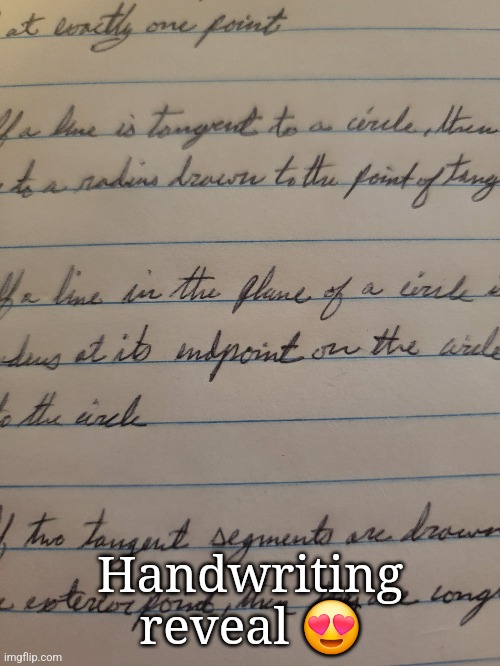 at exactly one point
If a line is tangent to a circle, then
to a radius drawn to the point of tang
If a line in the plane of a circle
dius at its endpoint on the circle
to the circle
If two tangent segments are drawn
exterior point, the are cong
Handwriting
reveal 😍
imgflip.com